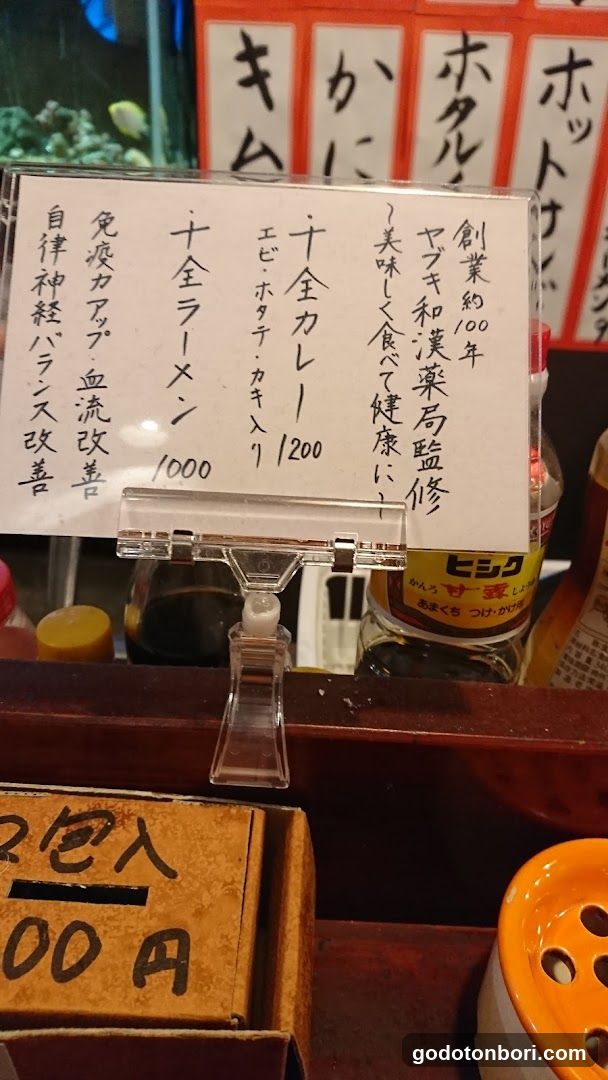 創業約100年
ヤブキ和漢薬局監修
~美味しく食べて健康に~
・十全カレー 1200
エビ・ホタテ・カキ入り
・十全ラーメン 1000
免疫力アップ・血流改善
自律神経バランス改善
キム
かに
ホタル
ホット
ヒシク
かんろ 甘露 しょうゆ
あまくち つけ・かけ用
包入
00円
godotonbori.com